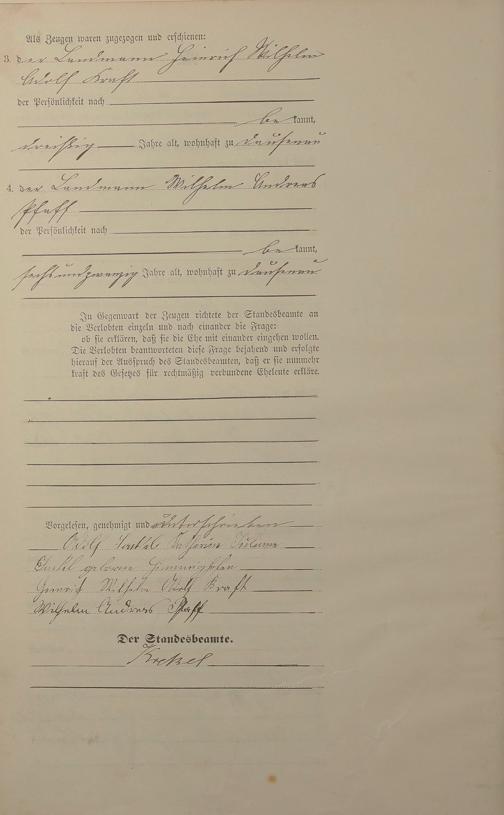 Als Zeugen waren zugezogen und erschienen:
3. der Landmann Heinrich Wilhelm
Adolf Kraft
der Persönlichkeit nach
be kannt,
dreißig Jahre alt, wohnhaft zu Dausenau
4. der Landmann Wilhelm Andreas
Pfaff
der Persönlichkeit nach
be kannt,
sechsundzwanzig Jahre alt, wohnhaft zu Dausenau
In Gegenwart der Zeugen richtete der Standesbeamte an
die Verlobten einzeln und nach einander die Frage:
ob sie erklären, daß sie die Ehe mit einander eingehen wollen.
Die Verlobten beantworteten diese Frage bejahend und erfolgte
hierauf der Ausspruch des Standesbeamten, daß er sie nunmehr
kraft des Gesetzes für rechtmäßig verbundene Eheleute erkläre.
Vorgelesen, genehmigt und unterschrieben
Adolf Katharine
geborene
Heinrich Wilhelm Adolf Kraft
Wilhelm Andreas Pfaff
Der Standesbeamte.